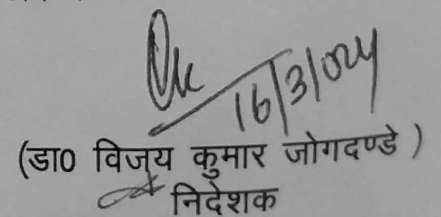 16/3/024
(डा0 विजय कुमार जोगदण्डे )
निदेशक